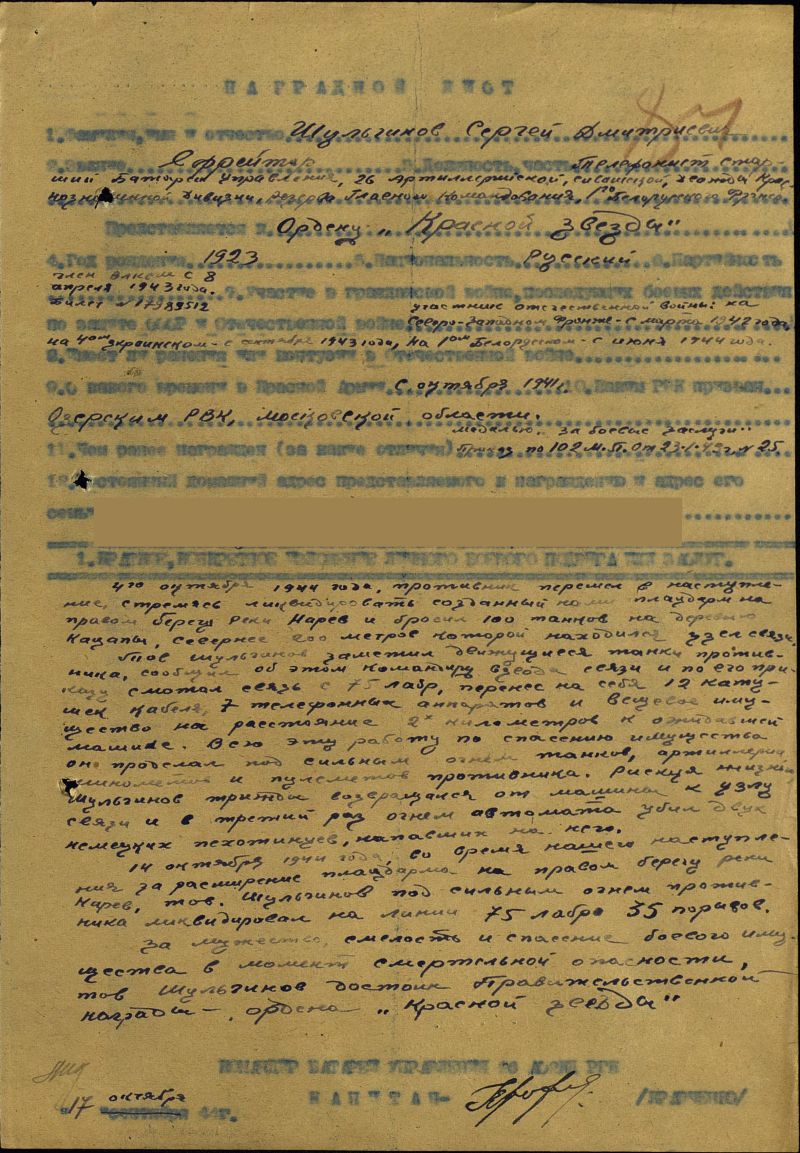 НАГРАДНОЙ ЛИСТ
1. Фамилия, имя и отчество Шульгинов Сергей Дмитриевич
2. Звание Ефрейтор 3. Должность, часть Телефонист стар-
ший Батареи Управления, 26 Артиллерийской, Сивашской, ордена Крас-
нознаменной Дивизии, Резерва Главного Командования, 1го Белорусского Фронта
Представляется к Ордену „Красной звезды"
4. Год рождения 1923 5. Национальность Русский 6. Партийность
член влксм с 8
апреля 1943 года.
Билет № 17989512 7. Участие в гражданской войне, последующих боевых действиях
по защите СССР и Отечественной войне участник отечественной войны: на
Северо-Западном Фронте - с марта 1942 года,
на 4ом Украинском - с сентября 1943 года, на 1ом Белорусском - с июня 1944 года.
8. Имеет ли ранения или контузии в Отечественной войне
9. С какого времени в Красной Армии с октября 1941г. 10. Каким РВК призван
Озерским РВК, московской области.
11. Чем ранее награжден (за какие отличия) медалью „за боевые заслуги"
Приказ по 102 М.П. от 23.1.43г № 25
12. Постоянный домашний адрес представляемого к награждению и адрес его
семьи
1. КРАТКОЕ, КОНКРЕТНОЕ ИЗЛОЖЕНИЕ ЛИЧНОГО БОЕВОГО ПОДВИГА ИЛИ ЗАСЛУГ.
4го октября 1944 года, противник перешел в наступле-
ние, стремясь ликвидировать созданный нами плацдарм на
правом берегу реки Нарев и бросил 100 танков на деревню
Кацапы, севернее 200 метров которой находился узел связи.
Тов Шульгинов заметил движущиеся танки против-
ника, сообщил об этом командиру взвода связи и по его при-
казу смотал связь с 75 лабр, перенес на себя 12 кату-
шек кабеля, 7 телефонных аппаратов и вещевое иму-
щество на расстояние 2х километров к ожидавшей
машине. Всю эту работу по спасению имущества
он проделал под сильным огнем танков, артиллерии
минометов и пулеметов противника. Рискуя жизнью
Шульгинов трижды возвращался от машины к узлу
связи и в третий раз огнем автомата убил двух
немецких пехотинцев, напавших на него.
14 октября 1944 года, во время нашего наступле-
ния за расширение плацдарма на правом берегу реки
Нарев, тов. Шульгинов под сильным огнем против-
ника ликвидировал на линии 75 лабр 35 порывов.
За мужество, смелость и спасение боевого иму-
щества в момент смертельной опасности,
тов Шульгинов достоин Правительственной
награды - ордена „Красной звезды"
КОМАНДИР БАТАРЕИ УПРАВЛЕНИЯ 26 АСКДД РГК
КАПИТАН- /КРАВЧЕНКО/
"17 октября
сентября 44г.